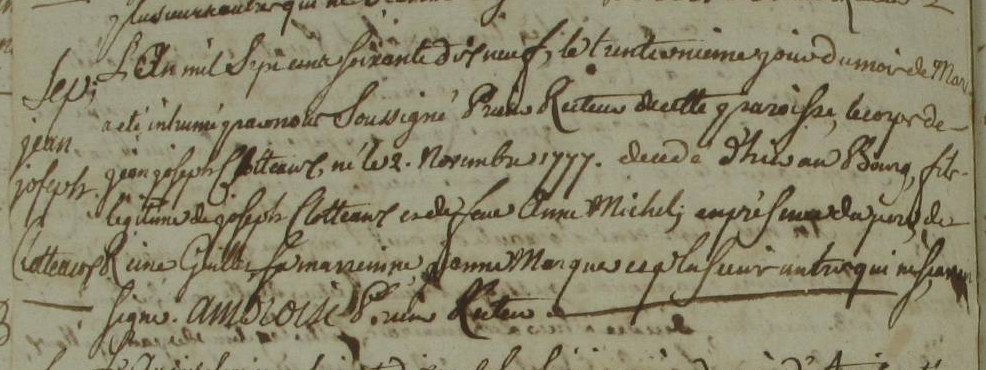 plusieurs autres qui ne
Sep: L'An mil Sept cent soixante dix neuf, le trente unieme jour du mois de Mars
jean a été inhumé par nous Soussigné Prieur Recteur de cette paroisse, le corps de
joseph jean joseph Clotteaux, né le 2. Novembre 1777. decedé d'hier au Bourg, fils
legitime de joseph Clotteaux et de feue Anne Michel; en présence du pere, de
Clotteaux Reine Guill sa marreinne, Jeanne Marque et plusieurs autres qui ne sçavent
signe. Ambroise Prieur Recteur